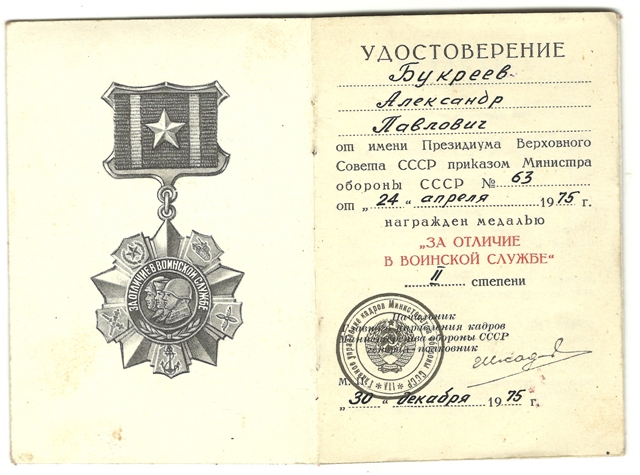 ЗА ОТЛИЧИЕ В ВОИНСКОЙ СЛУЖБЕ
УДОСТОВЕРЕНИЕ
Букреев
Александр
Павлович
от имени Президиума Верховного
Совета СССР приказом Министра
обороны СССР № 63
от „24“ апреля 1975 г.
награжден медалью
„ЗА ОТЛИЧИЕ
В ВОИНСКОЙ СЛУЖБЕ“
II степени
Начальник
Главного управления кадров
Министерства обороны СССР
генерал-полковник
М. П.
„30“ декабря 1975 г.
Главное управление кадров Министерства обороны СССР